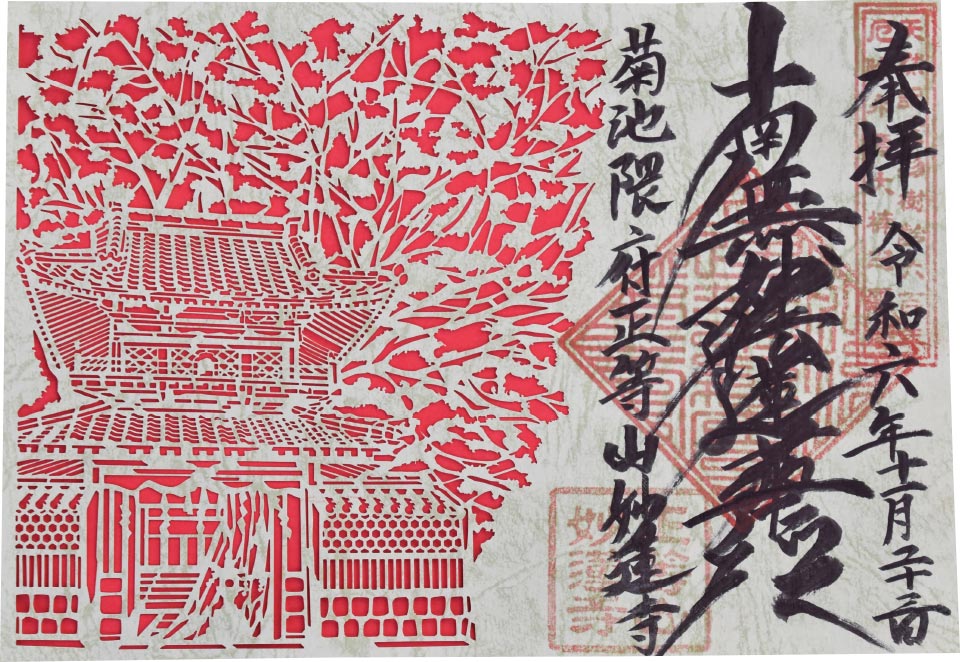 奉拝 令和六年十一月二十三日
南無妙法蓮華経
菊池隈府正等山妙蓮寺